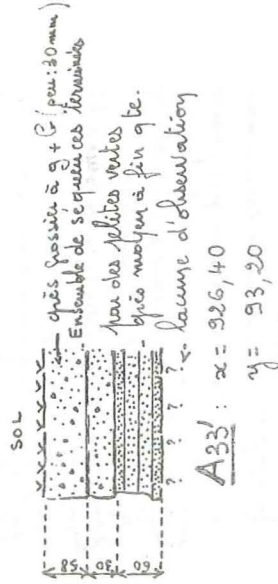 SOL
grès grossier à g + G (peu : 30 mm)
Ensemble de séquences terminées
par des pélites vertes
grès moyen à fin gte.
lacune d'observation
58
30
60
? ? ? ?
A33' : x = 926,40
y = 93,20